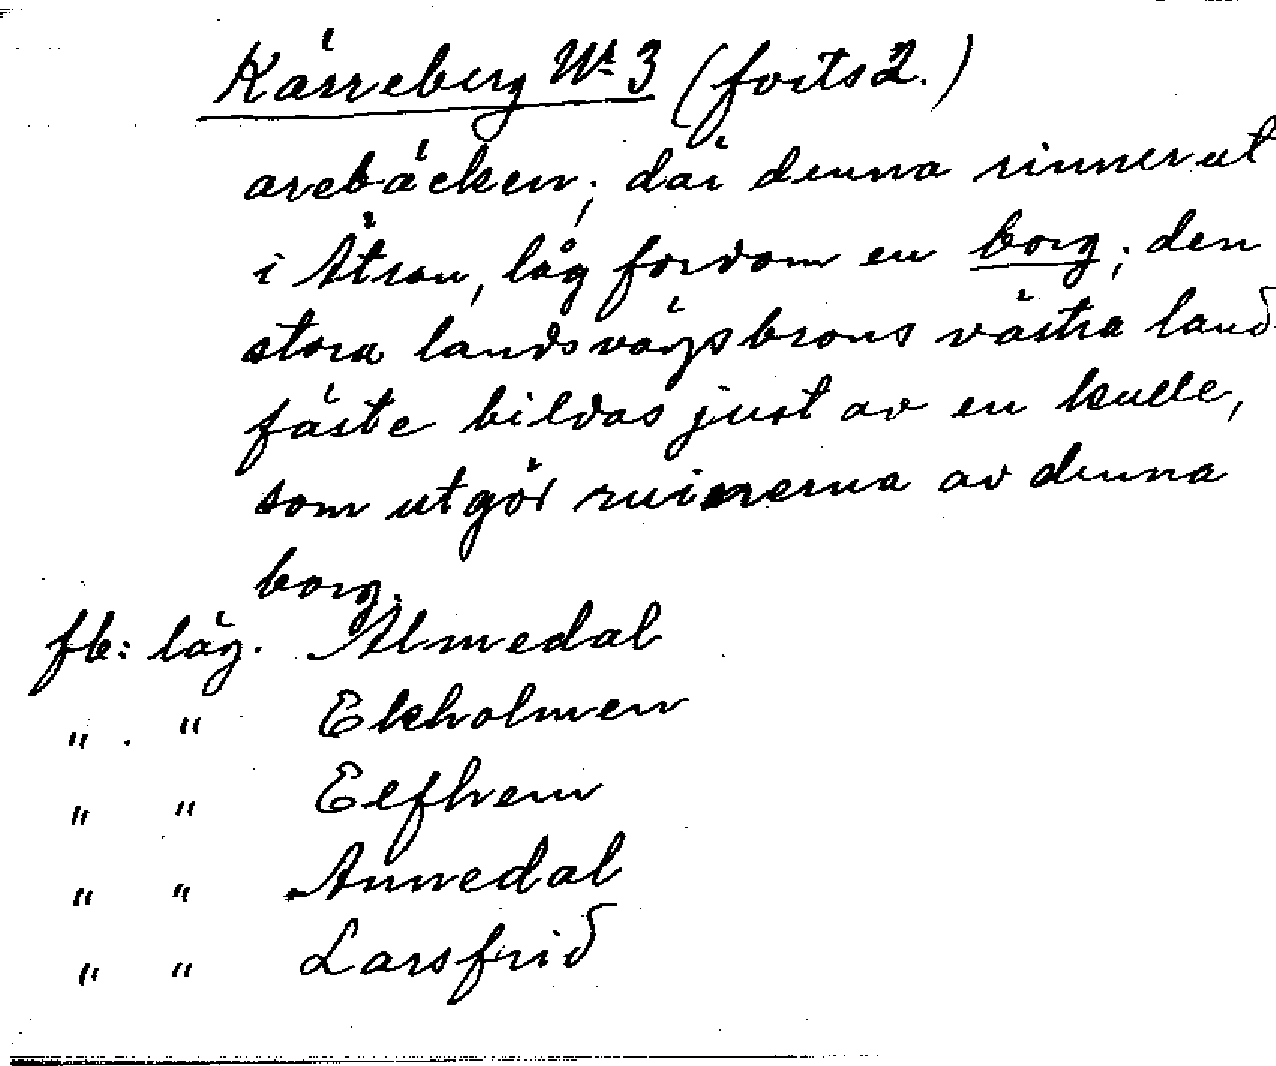 Kärreberg Nº 3 (forts 2.)
arebäcken; där denna rinner ut
i Ätran, låg fordom en borg; den
stora landsvägsbrons västra land-
fäste bildas just av en kulle,
som utgör ruinerna av denna
borg.
fb: läg. Almedal
" . " Ekholmen
" " Elfhem
" " Annedal
" " Larsfrid